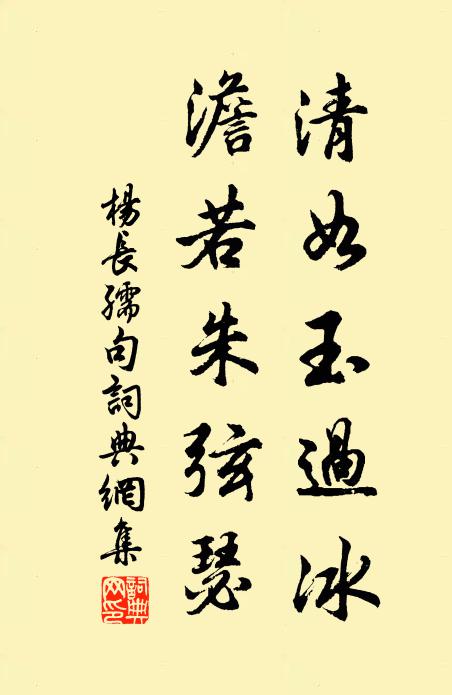 清如玉過冰
澹若朱弦瑟
楊長孺句詞典網集
詞典網印